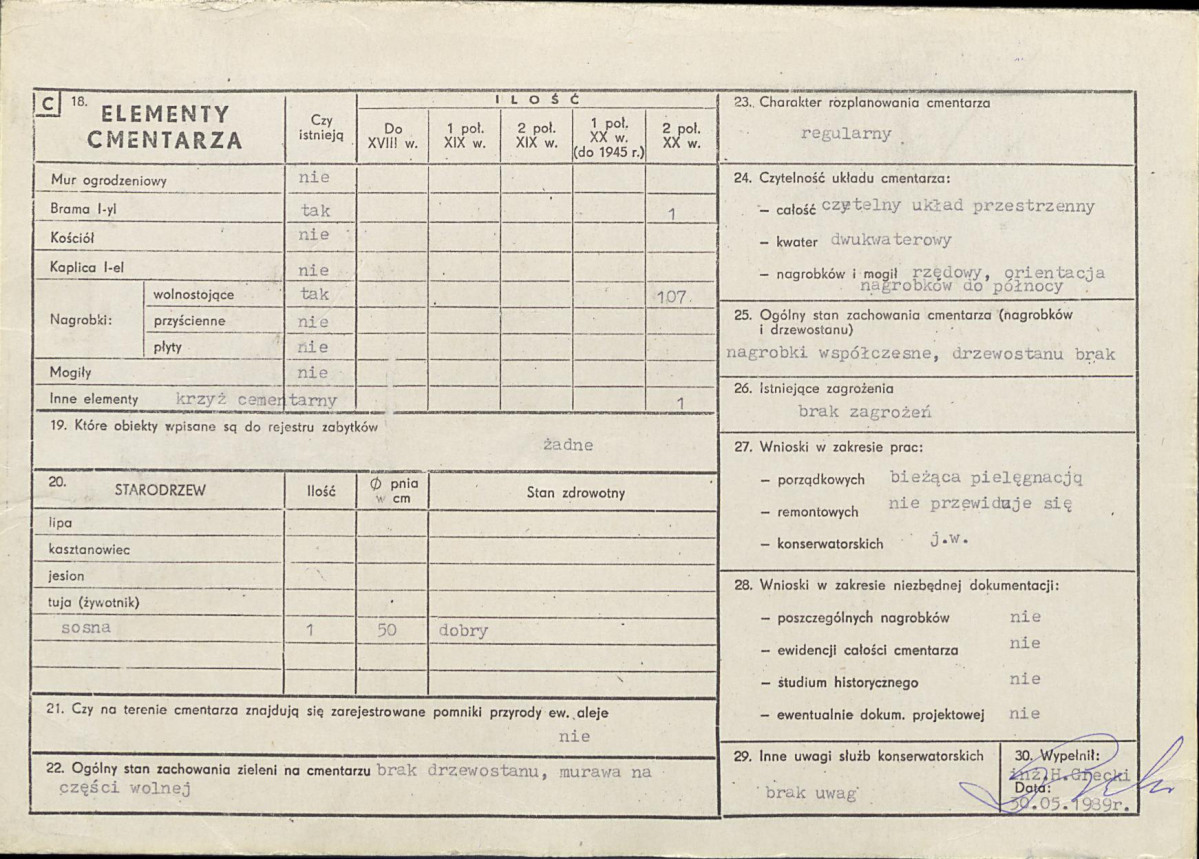 C 18. ELEMENTY CMENTARZA
Czy istnieją
ILOŚĆ
Do XVIII w.
1 poł. XIX w.
2 poł. XIX w.
1 poł. XX w. (do 1945 r.)
2 poł. XX w.
Mur ogrodzeniowy nie
Brama I-yl tak 1
Kościół nie
Kaplica I-el nie
Nagrobki:
wolnostojące tak 107
przyścienne nie
płyty nie
Mogiły nie
Inne elementy krzyż cementarny 1
19. Które obiekty wpisane są do rejestru zabytków
żadne
20. STARODRZEW
Ilość
Ø pnia w cm
Stan zdrowotny
lipa
kasztanowiec
jesion
tuja (żywotnik)
sosna 1 50 dobry
21. Czy na terenie cmentarza znajdują się zarejestrowane pomniki przyrody ew. aleje
nie
22. Ogólny stan zachowania zieleni na cmentarzu brak drzewostanu, murawa na
części wolnej
23. Charakter rozplanowania cmentarza
regularny
24. Czytelność układu cmentarza:
– całość czytelny układ przestrzenny
– kwater dwukwaterowy
– nagrobków i mogił rzędowy, orientacja
nagrobków do północy
25. Ogólny stan zachowania cmentarza (nagrobków
i drzewostanu)
nagrobki współczesne, drzewostanu brak
26. Istniejące zagrożenia
brak zagrożeń
27. Wnioski w zakresie prac:
– porządkowych bieżąca pielęgnacją
– remontowych nie przewiduje się
– konserwatorskich j.w.
28. Wnioski w zakresie niezbędnej dokumentacji:
– poszczególnych nagrobków nie
– ewidencji całości cmentarza nie
– studium historycznego nie
– ewentualnie dokum. projektowej nie
29. Inne uwagi służb konserwatorskich
brak uwag
30. Wypełnił:
inż.H.Grecki
Data:
30.05.1989r.